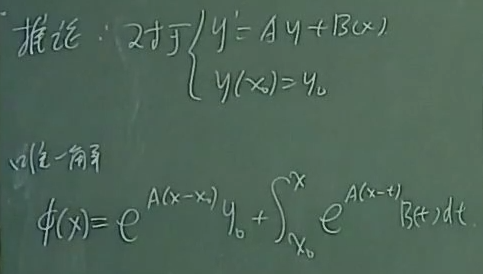 推论：对于{y'=Ay+B(x)
y(x₀)=y₀
唯一解
φ(x)=e^{A(x-x₀)}y₀+∫_{x₀}^{x}e^{A(x-t)}B(t)dt.